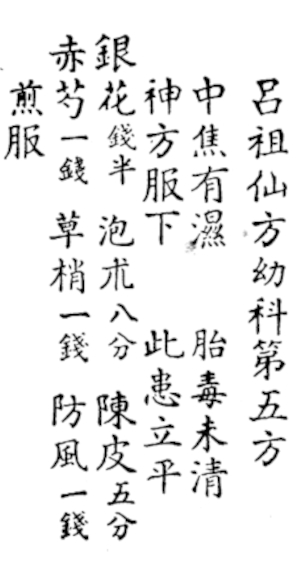 呂祖仙方幼科第五方
中焦有濕　胎毒未清
神方服下　此患立平
銀花錢半　泡朮八分　陳皮五分
赤芍一錢　草梢一錢　防風一錢
煎服